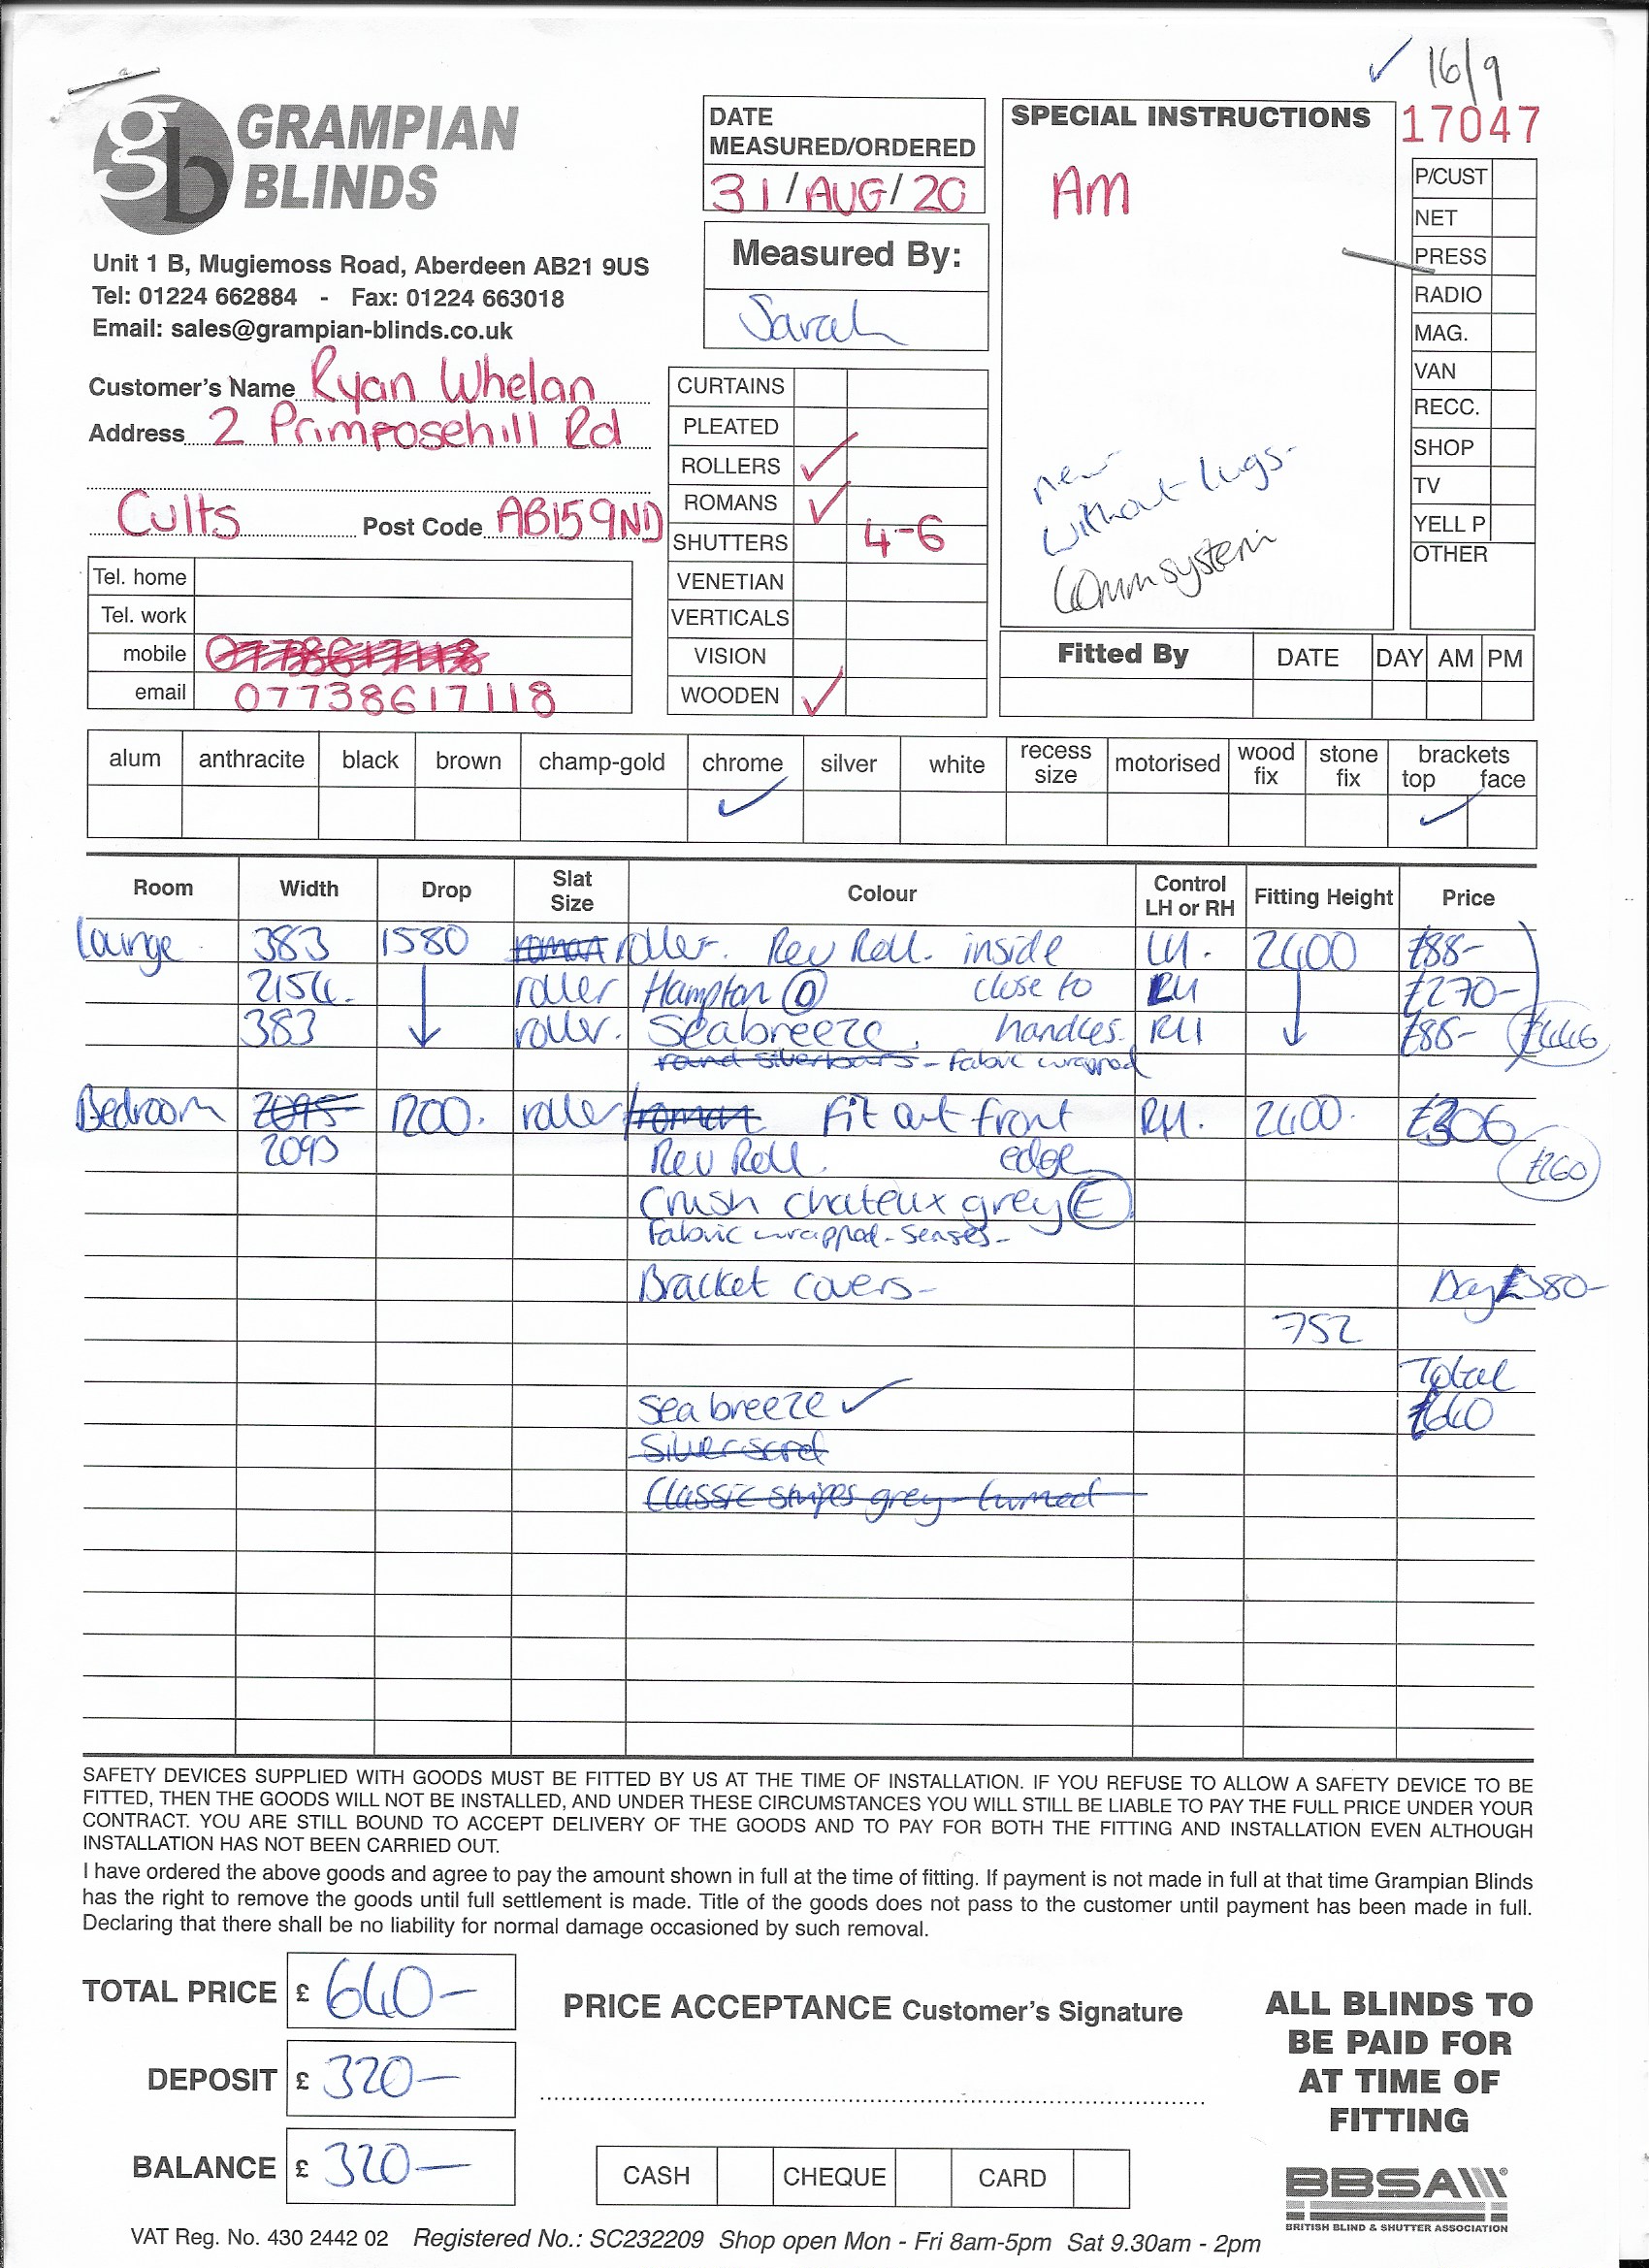 16/9
GRAMPIAN
BLINDS
Unit 1 B, Mugiemoss Road, Aberdeen AB21 9US
Tel: 01224 662884 - Fax: 01224 663018
Email: sales@grampian-blinds.co.uk
DATE
MEASURED/ORDERED
31/AUG/20
Measured By:
Sarah
SPECIAL INSTRUCTIONS
AM
new
without lugs-
system
17047
P/CUST
NET
PRESS
RADIO
MAG.
VAN
RECC.
SHOP
TV
YELL P
OTHER
Customer's Name Ryan Whelan
Address 2 Primposehill Rd
Cults Post Code AB15 9ND
Tel. home
Tel. work
mobile 07738617118
email 07738617118
CURTAINS
PLEATED
ROLLERS
ROMANS
SHUTTERS 4-6
VENETIAN
VERTICALS
VISION
WOODEN
Fitted By DATE DAY AM PM
alum anthracite black brown champ-gold chrome silver white recess size motorised wood fix stone fix brackets top face
Room Width Drop Slat Size Colour Control LH or RH Fitting Height Price
Lounge 383 1580 roman roller. Rev Roll. inside LH. 2400 £88-
2154. roller Hampton close to RH £270-
383 roller. Seabreeze. handles. RH £88- £446
round silver bars - Fabric wrapped
Bedroom 2095 1200. roller roman Fit out front RH. 2400. £306
2093 Rev Roll. edge £260
Crush chateux grey E
Fabric wrapped - Senses-
Bracket covers- £380-
752
Total
Seabreeze £640
Classic stripes grey - turned
SAFETY DEVICES SUPPLIED WITH GOODS MUST BE FITTED BY US AT THE TIME OF INSTALLATION. IF YOU REFUSE TO ALLOW A SAFETY DEVICE TO BE
FITTED, THEN THE GOODS WILL NOT BE INSTALLED, AND UNDER THESE CIRCUMSTANCES YOU WILL STILL BE LIABLE TO PAY THE FULL PRICE UNDER YOUR
CONTRACT. YOU ARE STILL BOUND TO ACCEPT DELIVERY OF THE GOODS AND TO PAY FOR BOTH THE FITTING AND INSTALLATION EVEN ALTHOUGH
INSTALLATION HAS NOT BEEN CARRIED OUT.
I have ordered the above goods and agree to pay the amount shown in full at the time of fitting. If payment is not made in full at that time Grampian Blinds
has the right to remove the goods until full settlement is made. Title of the goods does not pass to the customer until payment has been made in full.
Declaring that there shall be no liability for normal damage occasioned by such removal.
TOTAL PRICE £ 640-
DEPOSIT £ 320-
BALANCE £ 320-
PRICE ACCEPTANCE Customer's Signature
CASH CHEQUE CARD
ALL BLINDS TO
BE PAID FOR
AT TIME OF
FITTING
BBSA
BRITISH BLIND & SHUTTER ASSOCIATION
VAT Reg. No. 430 2442 02 Registered No.: SC232209 Shop open Mon - Fri 8am-5pm Sat 9.30am - 2pm